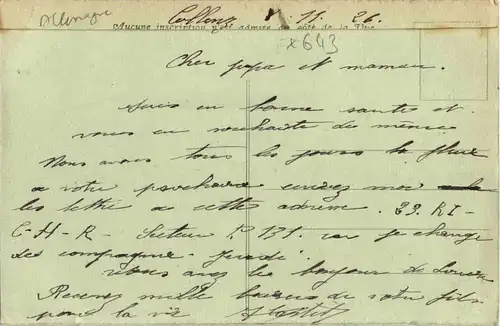 Allemagne
Coblenz 8/11.26.
Aucune inscription n'est admise du côté de la Vue
x643
Cher papa et maman.
Suis en bonne sante et
vous en souhaite de même
Nous avons tous les jours la pluie
a votre prochaine envoyez moi
les lettre a cette adresse. 23. RI-
C-H-R- Secteur P 131. car je change
des compagnie jeudi
vous avez les bonjour de
Recevez mille baisers de votre fils
pour la vie